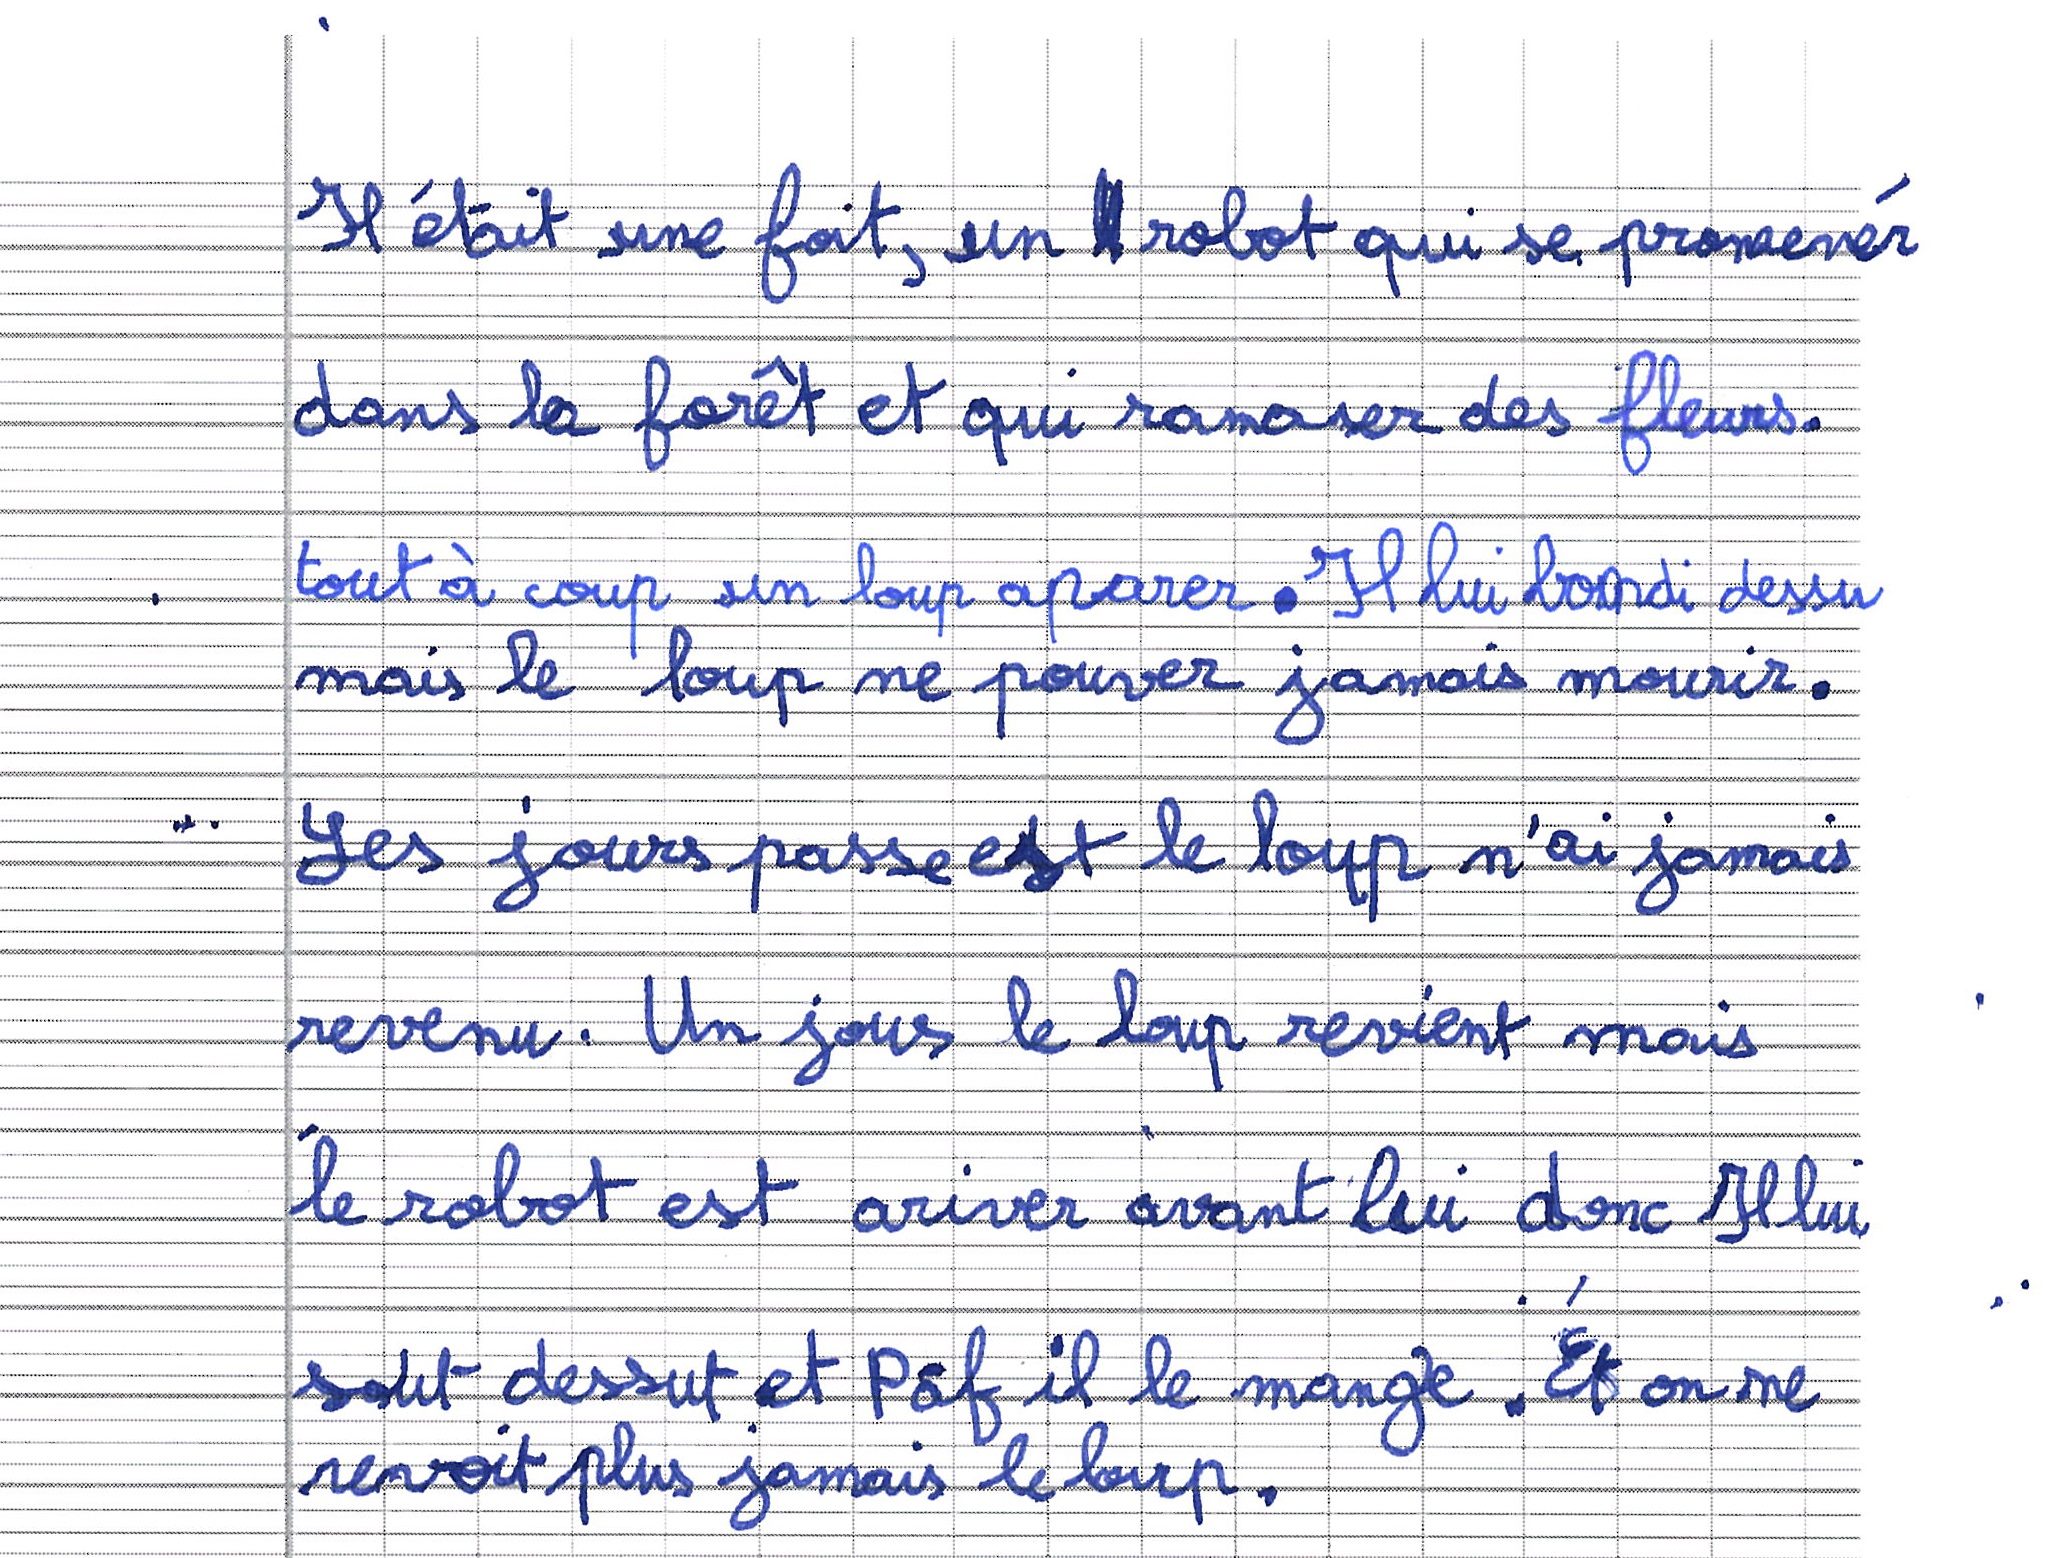 Il était une foit, un robot qui se promenér
dans la forêt et qui ramaser des fleurs.
tout à coup un loup aparer. Il lui bondi dessu
mais le loup ne pouver jamais mourir.
Les jours passe est le loup n'ai jamais
revenu. Un jour le loup revient mais
le robot est ariver avant lui donc Il lui
saut dessut et Paf il le mange. Ét on ne
renvoit plus jamais le loup.